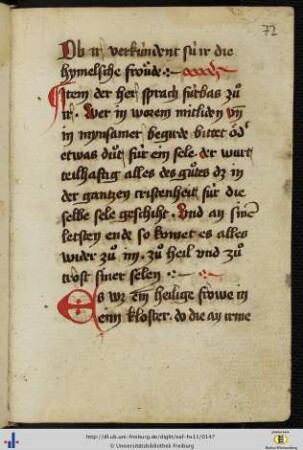 72
Ob ir verkúndent sú ir die
hymelsche froͤude :~
Item der her sprach fúrbas zuͦ
ir. Wer in worem mitliden vn̄
in mynsamer begirde bittet od'
etwas duͦt fúr ein sele. der wurt
teilhaftig alles des guͦtes dz in
der gantzen cristenheit fúr die
selbe sele geschiht. Vnd an sinē
letsten ende so komet es alles
wider zuͦ im. zuͦ heil vnd zuͦ
trost siner selen :~
Es wz ein heilige frowe in
eim kloster. do die an irme
http://dl.ub.uni-freiburg.de/diglit/sa-hs11/0147
© Universitätsbibliothek Freiburg